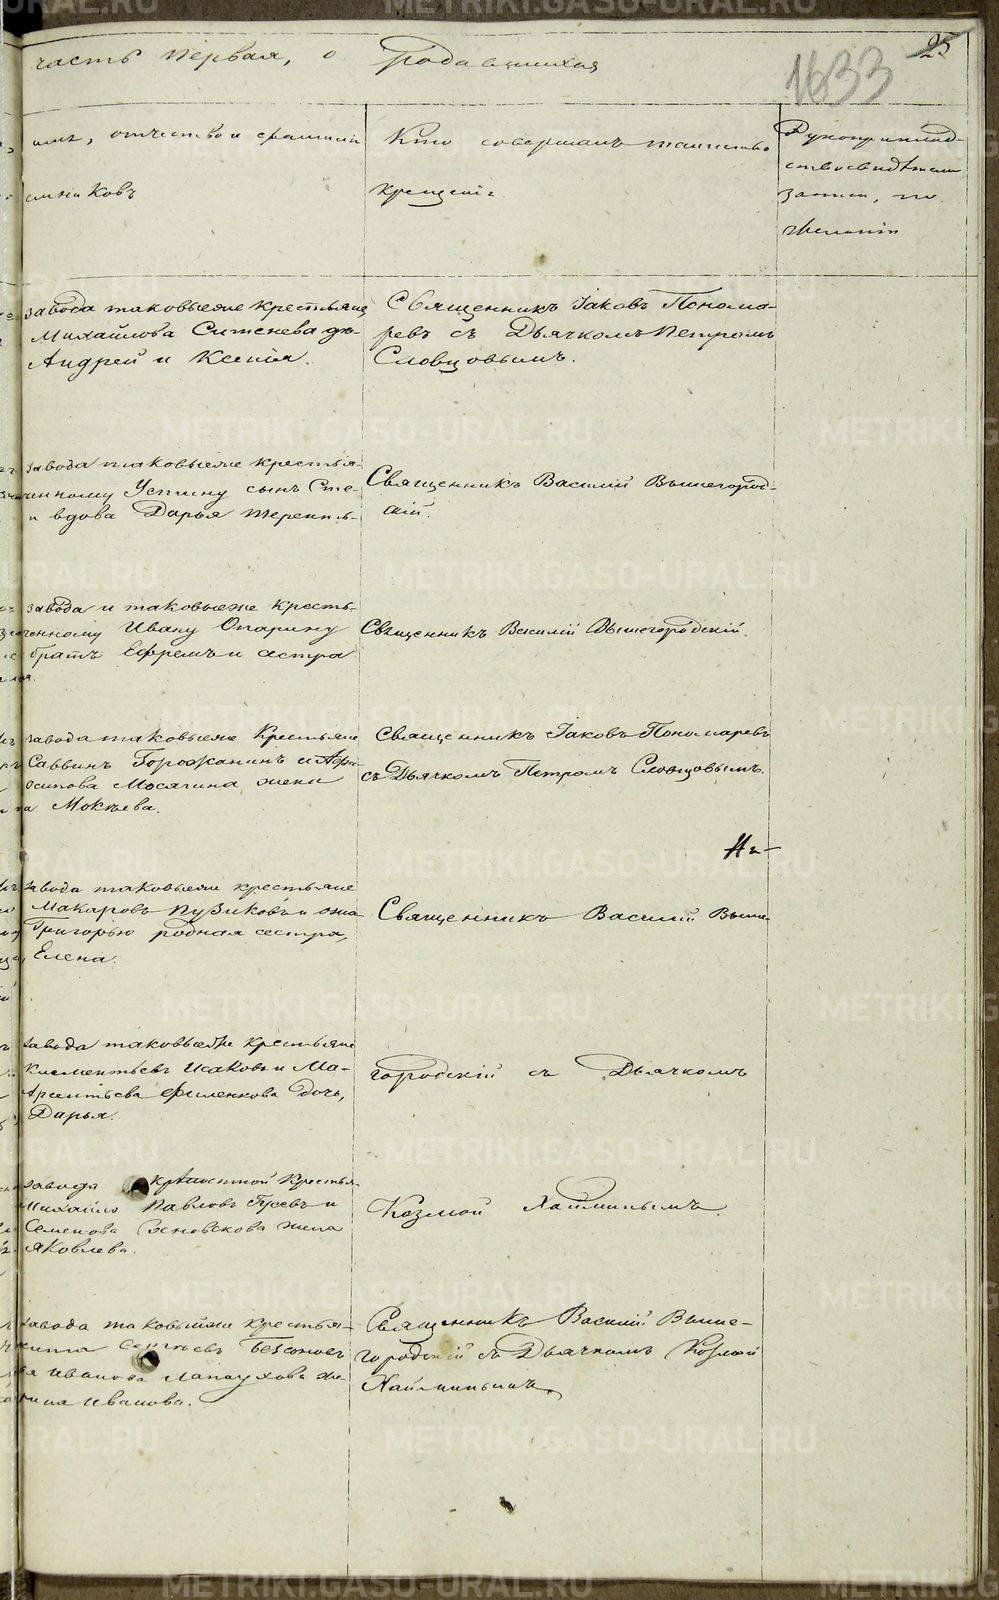 25
1633
часть первая, о родившихся
имя, отчество и фамилія
Кто совершалъ таинство
Рукоприклад-
емниковъ
крещенія
ство свидѣтелей
записи, по
желанію
завода таковыеже крестьяне
Михайлова Ситенева дѣ-
Андрей и Ксенія.
Священникъ Іаковъ Понома-
ревъ съ Дьячкомъ Петромъ
Словцовымъ.
завода таковыеже крестья-
ченному Устину сынъ Сте-
и вдова Дарья Терентъ-
Священникъ Василій Вышегород-
скій.
завода и таковыеже кресть-
ченному Ивану Опарину
братъ Ефремъ и сестра
Священникъ Василій Вышегородскій.
завода таковыеже Крестьяне
Саввинъ Горожанинъ и Афи-
Осипова Мосягина жена
а Мокѣева.
Священникъ Іаковъ Пономаревъ
съ Дьячкомъ Петромъ Словцовымъ.
завода таковыеже крестьяне
Макаровъ Пузиковъ и она
Григорью родная сестра,
Елена.
Священникъ Василій Выше-
завода таковыеже крестьяне
Клементьевъ Исаковъ и Ма-
Арсентьева Филенкова дочь,
Дарья.
городскій съ Дьячкомъ
завода крѣпостной Крестья-
Михайло Павловъ Гусевъ и
Семенова Сосновскова жена
Яковлева.
Козмой Хайминымъ.
завода таковыеже крестья-
Сергѣевъ Безсонов
Иванова Лапаухова же-
рина Иванова.
Священникъ Василій Выше-
городскій съ Дьячкомъ Козмой
Хайминымъ
METRIKI.GASO-URAL.RU